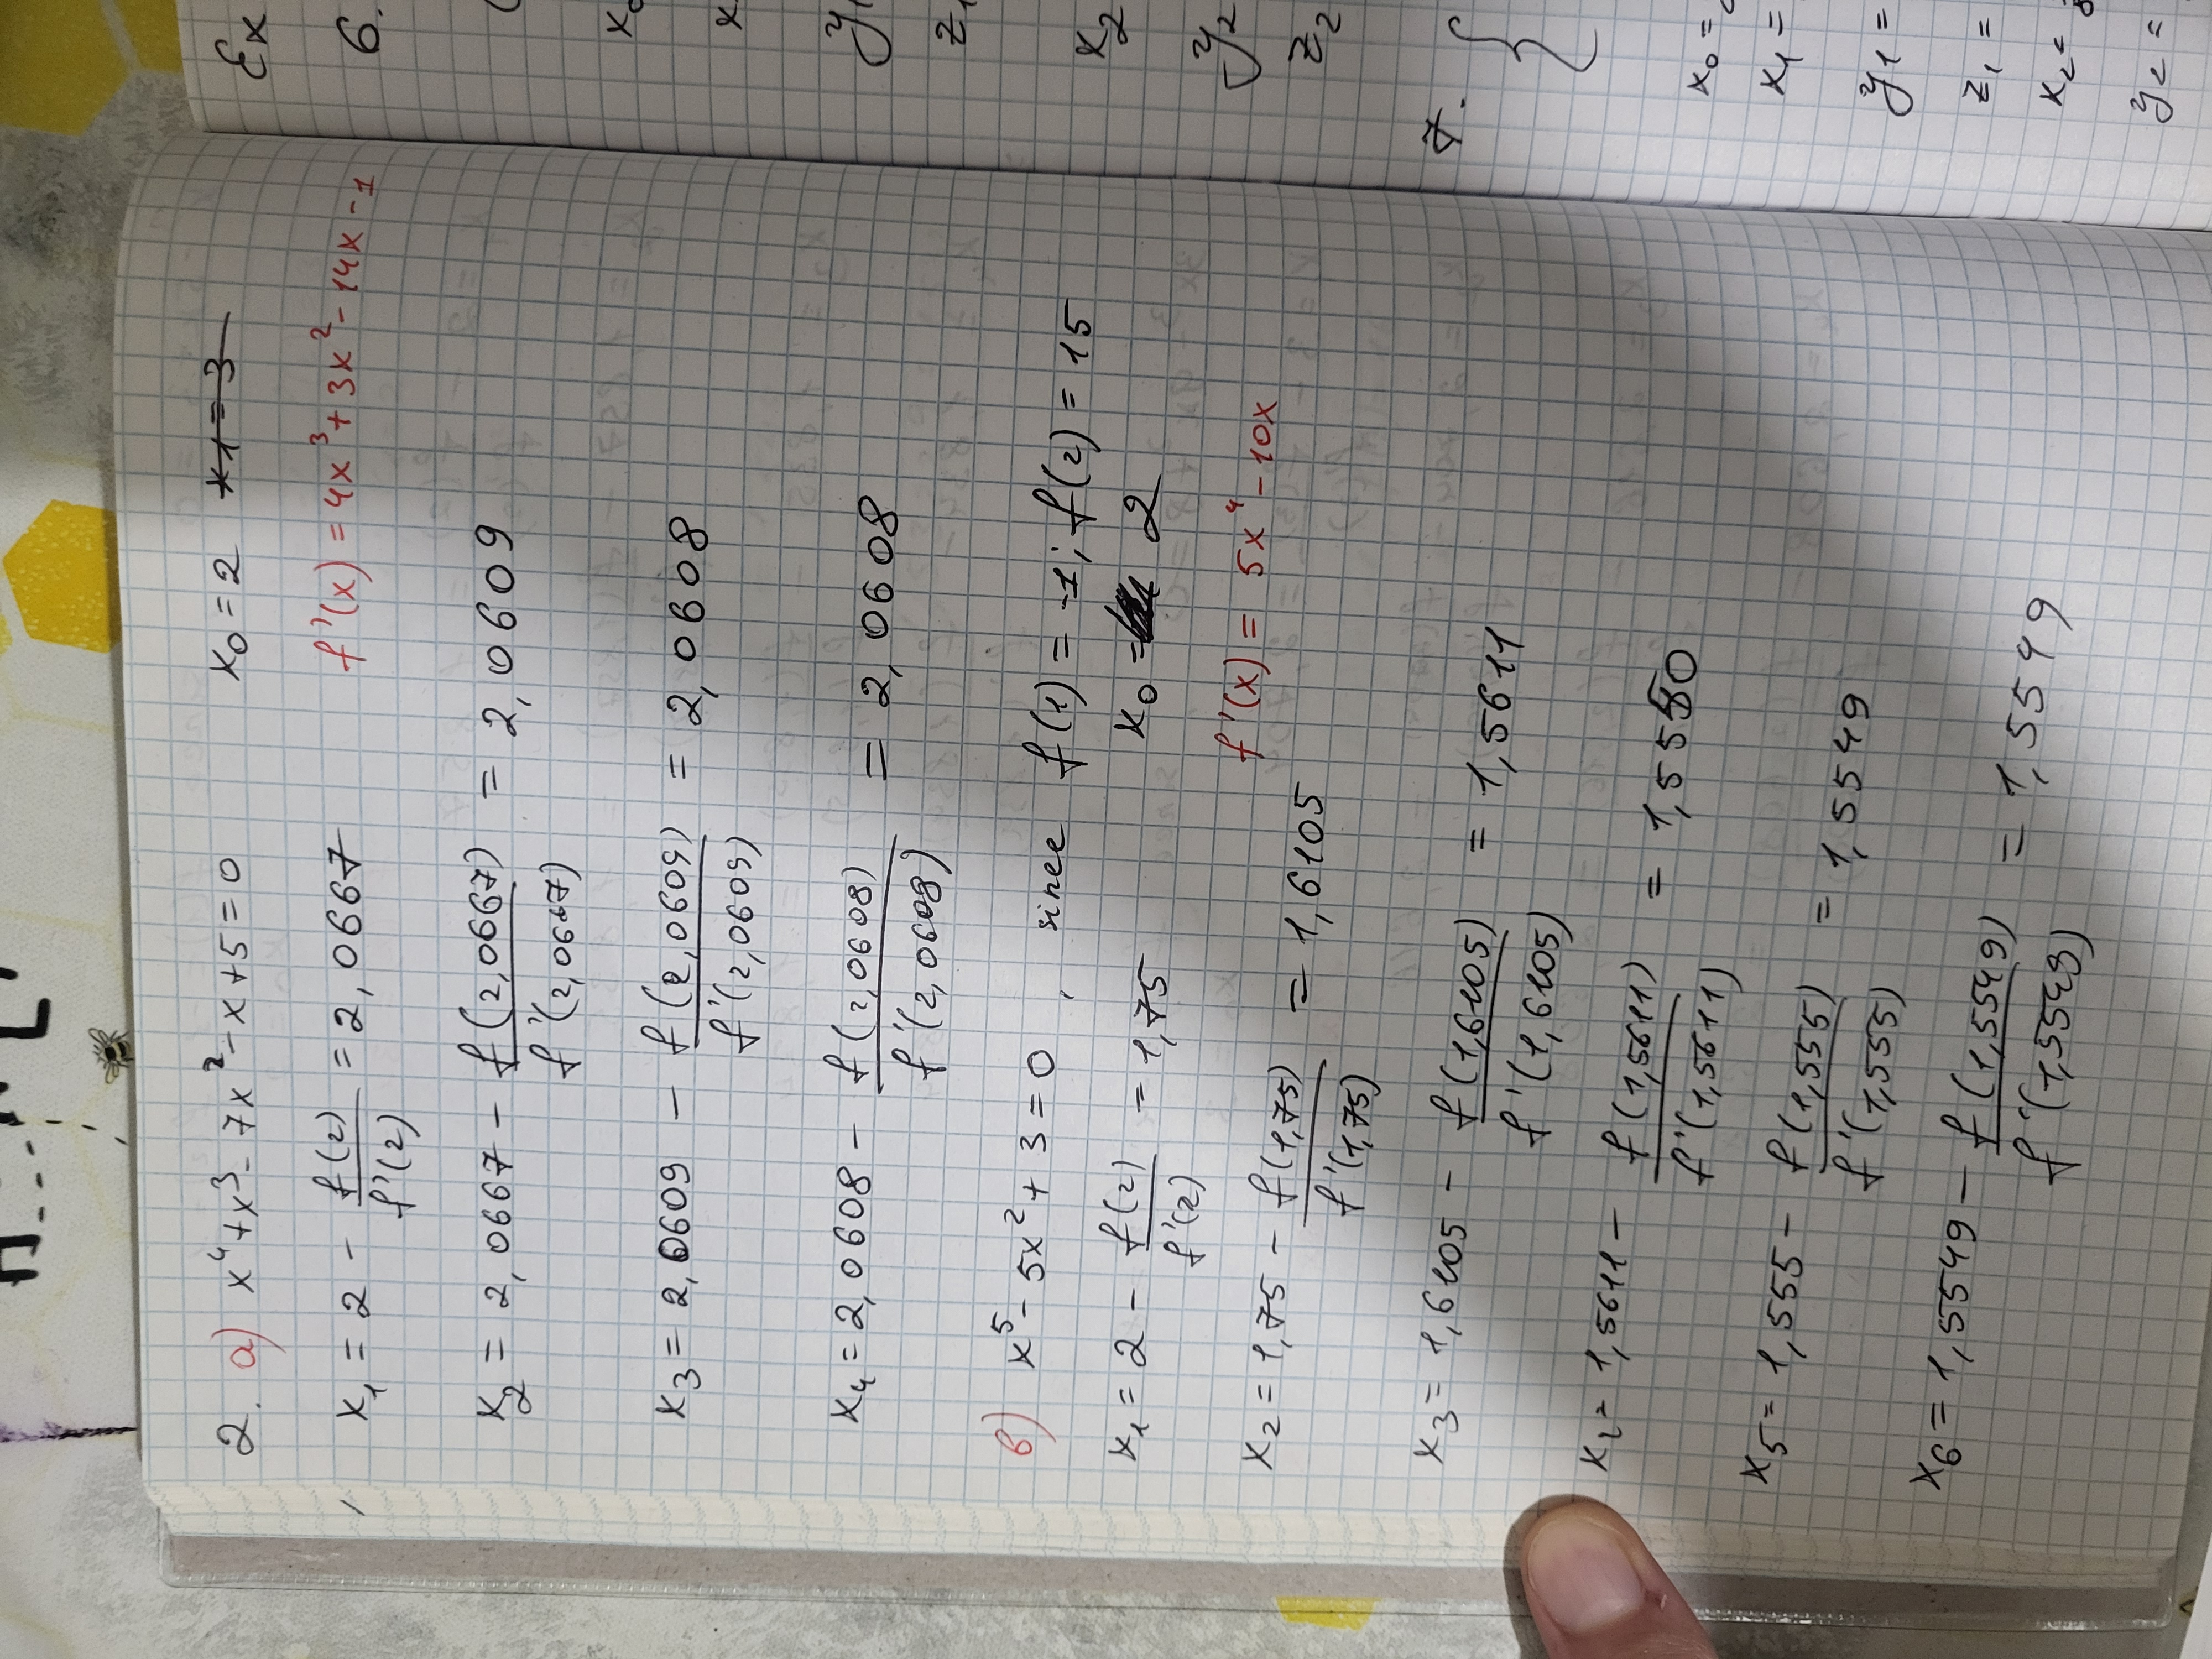 2. a) x⁴+x³-7x²-x+5=0 x₀=2 x1=3
x₁ = 2 - f(2)/f'(2) = 2,0667 f'(x) = 4x³+3x²-14x-1
x₂ = 2,0667 - f(2,0667)/f'(2,0667) = 2,0609
x₃ = 2,0609 - f(2,0609)/f'(2,0609) = 2,0608
x₄ = 2,0608 - f(2,0608)/f'(2,0608) = 2,0608
в) x⁵-5x²+3=0, since f(1) = -1; f(2) = 15
x₁ = 2 - f(2)/f'(2) = 1,75 x₀ = 2
f'(x) = 5x⁴-10x
x₂ = 1,75 - f(1,75)/f'(1,75) = 1,6105
x₃ = 1,6105 - f(1,6105)/f'(1,6105) = 1,5611
x₄ = 1,5611 - f(1,5611)/f'(1,5611) = 1,5550
x₅ = 1,555 - f(1,555)/f'(1,555) = 1,5549
x₆ = 1,5549 - f(1,5549)/f'(1,5549) = 1,5549
Ex
6.
x₂
y₂
z₂
7. {
x₀ =
x₁ =
y₁ =
z₁ =
x₂ =
y₂ =